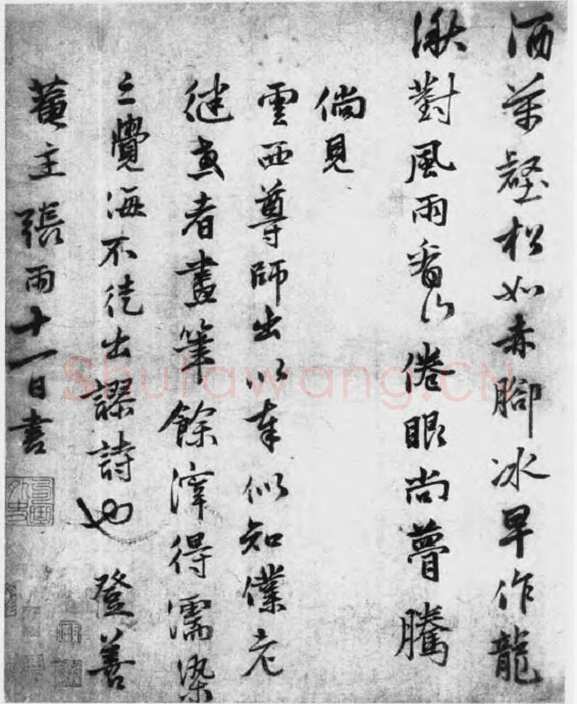 洒萬壑松如赤腳冰早作龍
湫對風雨看山倦眼尚瞢騰
倘見
雲西尊師出以奉似知僕老
繆畫者畫筆餘滓得濡染
之覺海不徒出謬詩也 登善
菴主張雨十一日書
Shufawang.CN